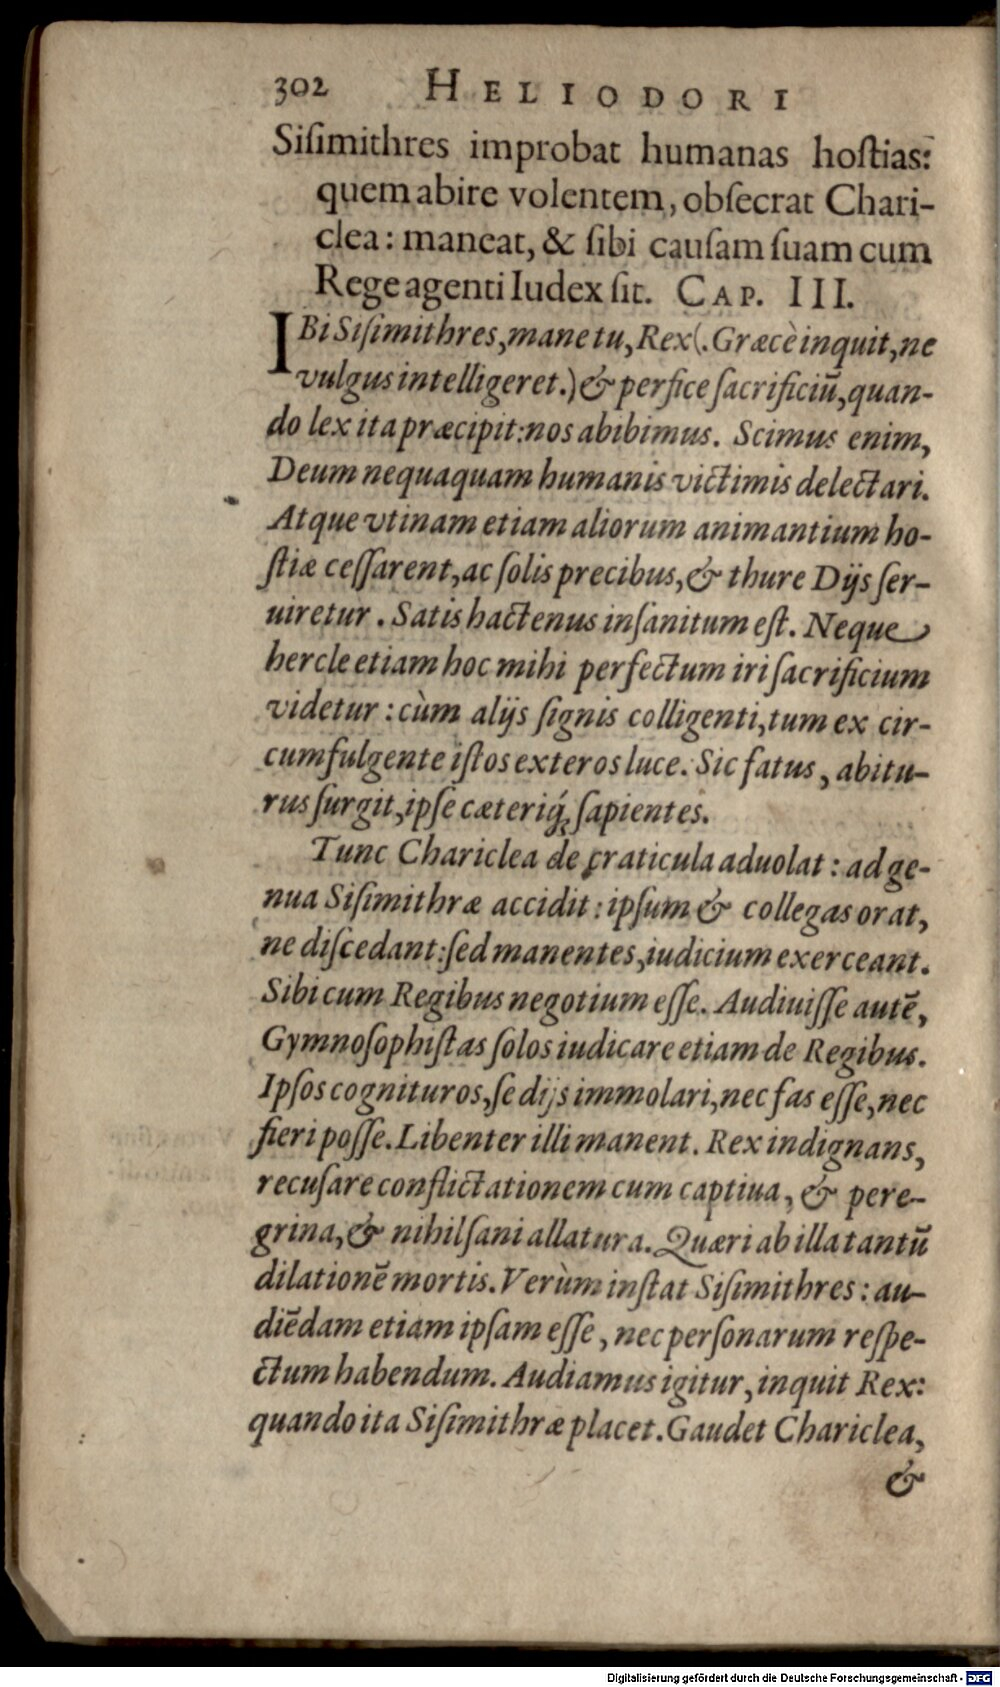 302 HELIODORI
Siſimithres improbat humanas hoſtias:
quem abire volentem, obſecrat Chari-
clea: maneat, & ſibi cauſam ſuam cum
Rege agenti Iudex ſit. CAP. III.
IBi Siſimithres, mane tu, Rex (. Græcè inquit, ne
vulgus intelligeret.) & perfice ſacrificiū, quan-
do lex ita præcipit: nos abibimus. Scimus enim,
Deum nequaquam humanis victimis delectari.
Atque vtinam etiam aliorum animantium ho-
ſtiæ ceſſarent, ac ſolis precibus, & thure Dijs ſer-
uiretur. Satis hactenus inſanitum eſt. Neque
hercle etiam hoc mihi perfectum iri ſacrificium
videtur: cùm alijs ſignis colligenti, tum ex cir-
cumfulgente iſtos exteros luce. Sic fatus, abitu-
rus ſurgit, ipſe cæteriq́; ſapientes.
Tunc Chariclea de craticula aduolat: ad ge-
nua Siſimithræ accidit: ipſum & collegas orat,
ne diſcedant: ſed manentes, iudicium exerceant.
Sibi cum Regibus negotium eſſe. Audiuiſſe autē,
Gymnoſophiſtas ſolos iudicare etiam de Regibus.
Ipſos cognituros, ſe dijs immolari, nec fas eſſe, nec
fieri poſſe. Libenter illi manent. Rex indignans,
recuſare conflictationem cum captiua, & pere-
grina, & nihil ſani allatura. Quæri ab illa tantū
dilationē mortis. Verùm inſtat Siſimithres: au-
diēdam etiam ipſam eſſe, nec perſonarum reſpe-
ctum habendum. Audiamus igitur, inquit Rex:
quando ita Siſimithræ placet. Gaudet Chariclea,
&
Digitalisierung gefördert durch die Deutsche Forschungsgemeinschaft - DFG